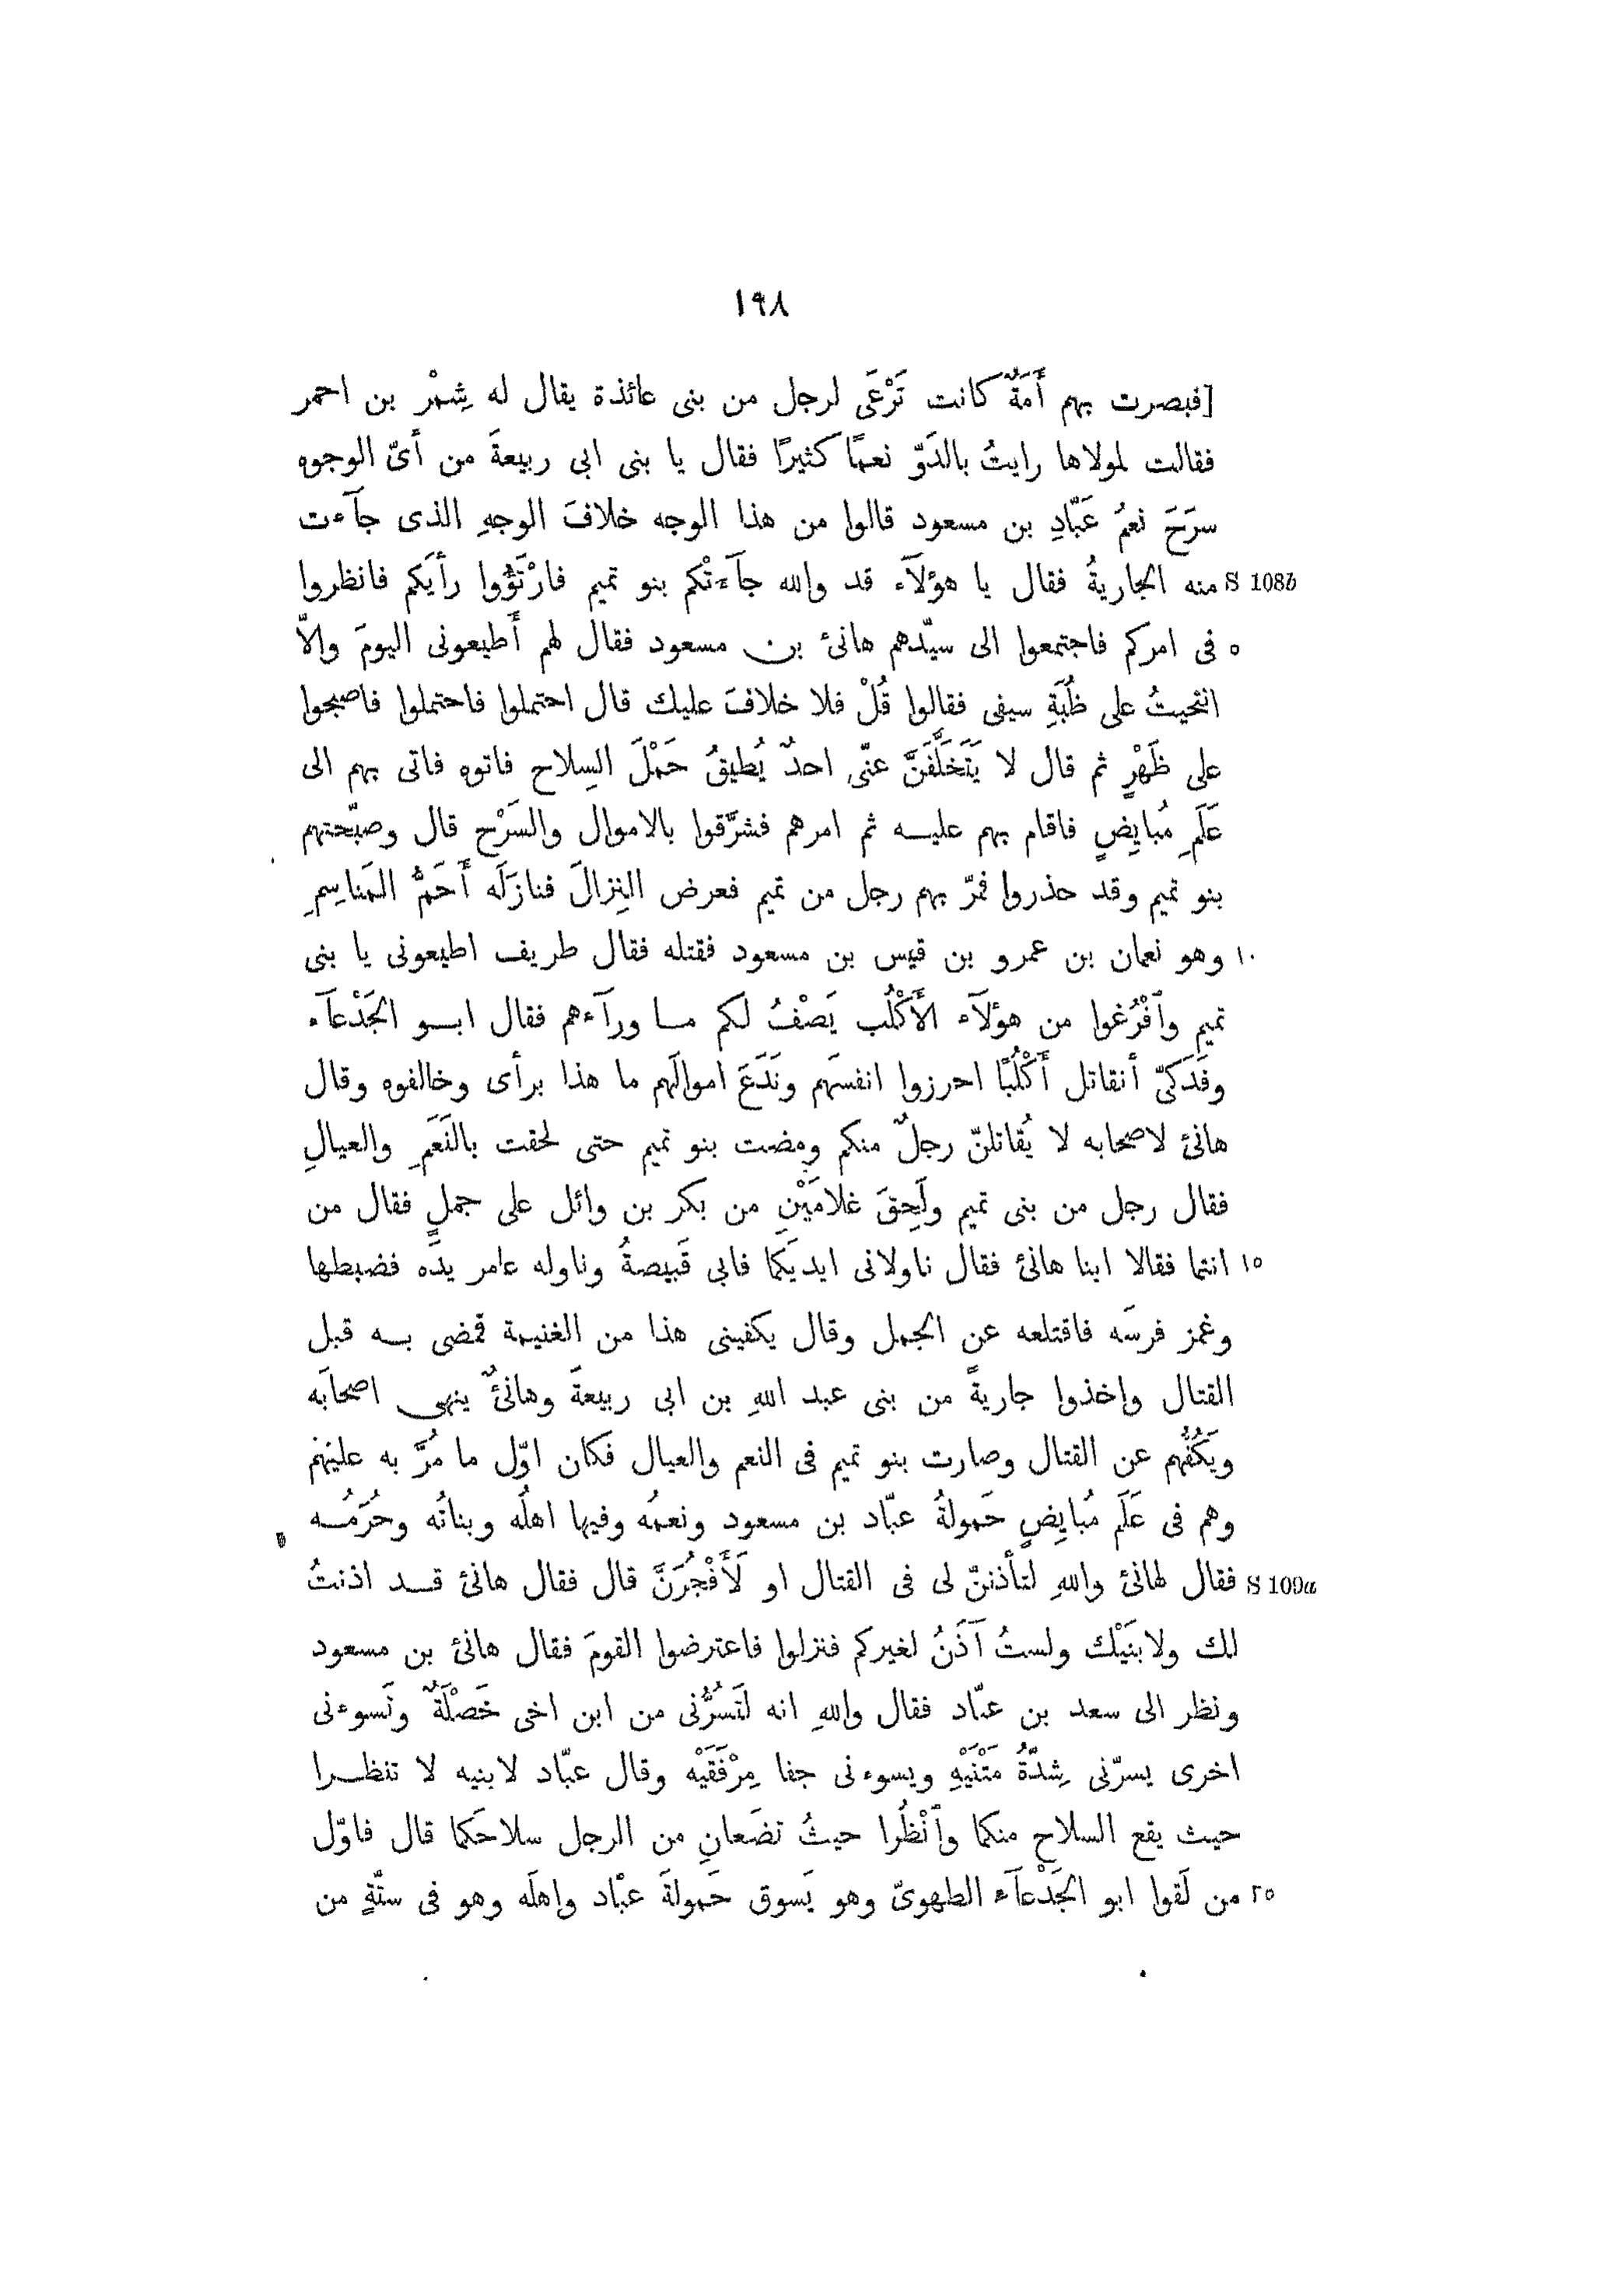 ١٩٨
[فبصرت بهم أَمَةٌ كانت تَرْعَى لرجل من بنى عائذة يقال له شِمْر بن احمر
فقالت لمولاها رايتُ بالدَوّ نعمًا كثيرًا فقال يا بنى ابى ربيعةَ من أىّ الوجوه
سرَحَ نعمُ عَبّادِ بن مسعود قالوا من هذا الوجه خلافَ الوجهِ الذى جآءت
S 108b منه الجاريةُ فقال يا هؤلآء قد والله جآءتْكم بنو تميم فارْتَؤُوا رأيَكم فانظروا
٥ فى امركم فاجتمعوا الى سيّدهم هانئ بن مسعود فقال لهم أَطيعونى اليومَ والّا
انتحيتُ على ظُبَةِ سيفى فقالوا قُلْ فلا خلافَ عليك قال احتملوا فاحتملوا فاصبحوا
على ظَهْرٍ ثم قال لا يَتَخَلَّفَنَّ عنّى احدٌ يُطيقُ حَمْلَ السِلاح فاتوه فاتى بهم الى
عَلَمِ مُبايِضٍ فاقام بهم عليه ثم امرهم فشرّقوا بالاموال والسَرْح قال وصبّحتهم
بنو تميم وقد حذروا فمرّ بهم رجل من تميم فعرض النِزالَ فنازَلَه أَحَمُّ المَناسِمِ
١٠ وهو نعمان بن عمرو بن قيس بن مسعود فقتله فقال طريف اطيعونى يا بنى
تميم وٱفْرُغوا من هؤلآء الأَكْلُب يَصْفُ لكم ما ورآءهم فقال ابو الجَدْعآء
وفَدَكىّ أنقاتل أَكْلُبًا احرزوا انفسَهم ونَدَعَ اموالَهم ما هذا برأى وخالفوه وقال
هانئ لاصحابه لا يُقاتلنّ رجلٌ منكم ومضت بنو تميم حتى لحقت بالنَعَمِ والعيالِ
فقال رجل من بنى تميم ولَحِقَ غلامَيْنِ من بكر بن وائل على جملٍ فقال من
١٥ انتما فقالا ابنا هانئ فقال ناولانى ايديَكما فابى قَبيصةُ وناوله عامر يدَه فضبطها
وغمز فرسَه فاقتلعه عن الجمل وقال يكفينى هذا من الغنيمة فمضى به قبل
القتال واخذوا جاريةً من بنى عبد اللهِ بن ابى ربيعةَ وهانئٌ ينهى اصحابَه
ويَكُفُّهم عن القتال وصارت بنو تميم فى النعم والعيال فكان اوّل ما مُرَّ به عليهم
وهم فى عَلَم مُبايِضٍ حَمولةُ عبّاد بن مسعود ونعمُه وفيها اهلُه وبناتُه وحُرَمُه
S 109a فقال لهانئ واللهِ لتأذننّ لى فى القتال او لَأَفْجُرَنَّ قال فقال هانئ قد اذنتُ
لك ولابنَيْك ولستُ آذَنُ لغيركم فنزلوا فاعترضوا القومَ فقال هانئ بن مسعود
ونظر الى سعد بن عبّاد فقال واللهِ انه لَتَسُرُّنى من ابن اخى خَصْلَةٌ وتَسوءنى
اخرى يسرّنى شِدّةُ مَتْنَيْهِ ويسوءنى جفا مِرْفَقَيْه وقال عبّاد لابنيه لا تنظرا
حيث يقع السلاح منكما وٱنْظُرا حيثُ تضَعانِ من الرجل سلاحَكما قال فاوّل
٢٥ من لَقوا ابو الجَدْعآء الطهوىّ وهو يَسوق حَمولةَ عبّاد واهلَه وهو فى ستّةٍ من